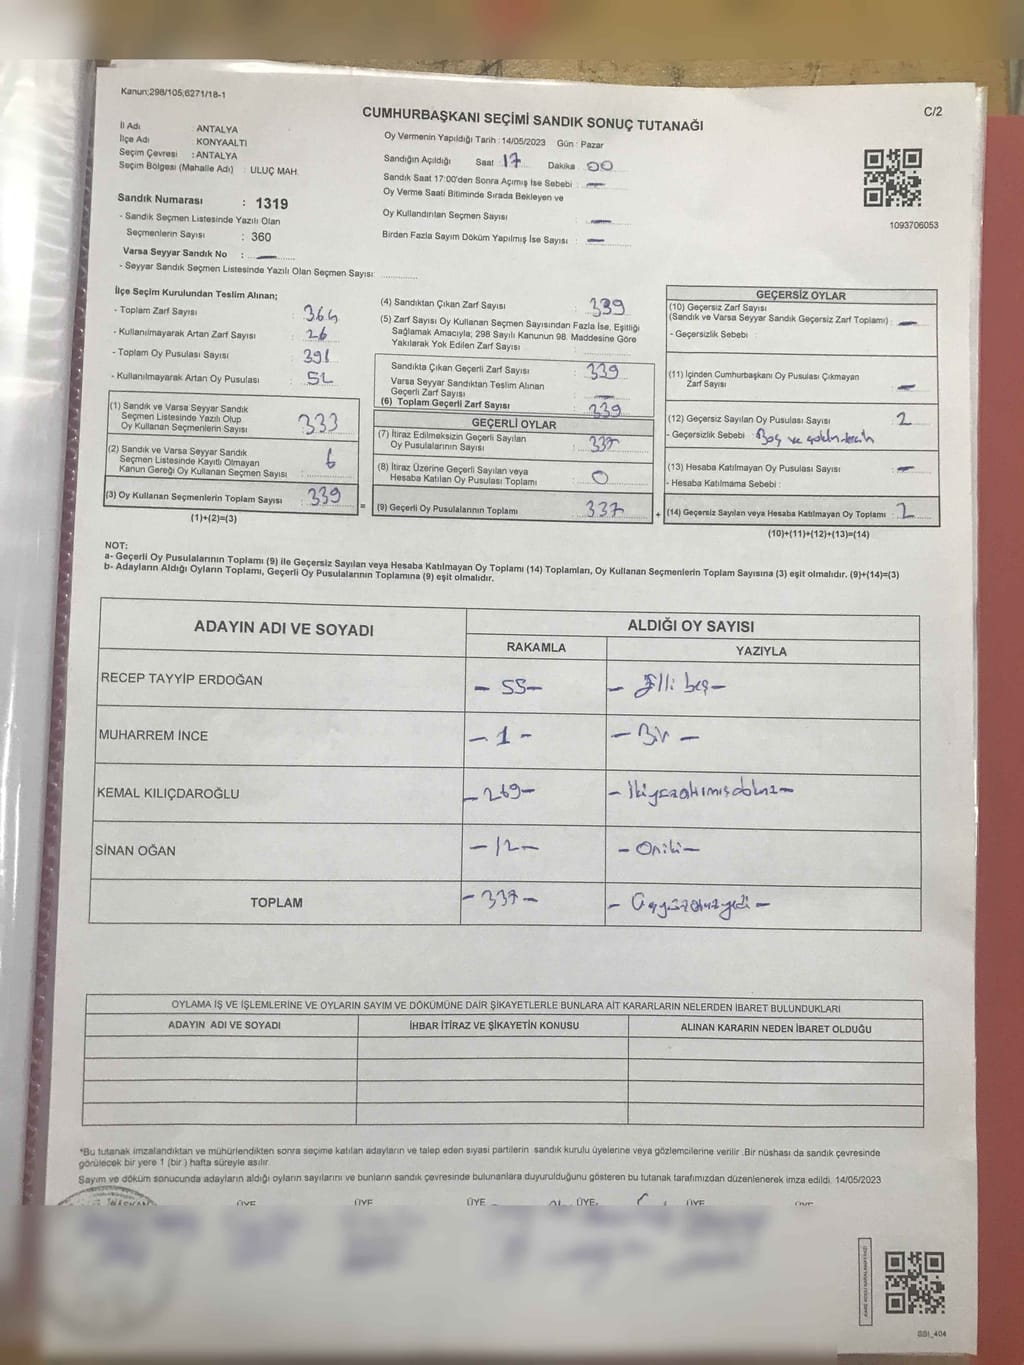 Kanun:298/105,6271/18-1
C/2
CUMHURBAŞKANI SEÇİMİ SANDIK SONUÇ TUTANAĞI
İl Adı : ANTALYA
İlçe Adı : KONYAALTI
Seçim Çevresi : ANTALYA
Seçim Bölgesi (Mahalle Adı) : ULUÇ MAH.
Oy Vermenin Yapıldığı Tarih : 14/05/2023 Gün : Pazar
Sandığın Açıldığı Saat : 17 Dakika : 00
Sandık Saat 17:00'den Sonra Açımış İse Sebebi : —
Oy Verme Saati Bitiminde Sırada Bekleyen ve
Oy Kullandırılan Seçmen Sayısı : —
Birden Fazla Sayım Döküm Yapılmış İse Sayısı : —
1093706053
Sandık Numarası : 1319
- Sandık Seçmen Listesinde Yazılı Olan
Seçmenlerin Sayısı : 360
Varsa Seyyar Sandık No : —
- Seyyar Sandık Seçmen Listesinde Yazılı Olan Seçmen Sayısı:
İlçe Seçim Kurulundan Teslim Alınan;
- Toplam Zarf Sayısı :
- Kullanılmayarak Artan Zarf Sayısı : 26
- Toplam Oy Pusulası Sayısı : 391
- Kullanılmayarak Artan Oy Pusulası :
(1) Sandık ve Varsa Seyyar Sandık
Seçmen Listesinde Yazılı Olup
Oy Kullanan Seçmenlerin Sayısı : 333
(2) Sandık ve Varsa Seyyar Sandık
Seçmen Listesinde Kayıtlı Olmayan
Kanun Gereği Oy Kullanan Seçmen Sayısı : 6
(3) Oy Kullanan Seçmenlerin Toplam Sayısı : 339
(1)+(2)=(3)
(4) Sandıktan Çıkan Zarf Sayısı : 339
(5) Zarf Sayısı Oy Kullanan Seçmen Sayısından Fazla İse, Eşitliği
Sağlamak Amacıyla; 298 Sayılı Kanunun 98. Maddesine Göre
Yakılarak Yok Edilen Zarf Sayısı :
Sandıkta Çıkan Geçerli Zarf Sayısı : 339
Varsa Seyyar Sandıktan Teslim Alınan
Geçerli Zarf Sayısı : —
(6) Toplam Geçerli Zarf Sayısı : 339
GEÇERLİ OYLAR
(7) İtiraz Edilmeksizin Geçerli Sayılan
Oy Pusulalarının Sayısı : 337
(8) İtiraz Üzerine Geçerli Sayılan veya
Hesaba Katılan Oy Pusulası Toplamı : 0
= (9) Geçerli Oy Pusulalarının Toplamı : 337
GEÇERSİZ OYLAR
(10) Geçersiz Zarf Sayısı
(Sandık ve Varsa Seyyar Sandık Geçersiz Zarf Toplamı) : —
- Geçersizlik Sebebi :
(11) İçinden Cumhurbaşkanı Oy Pusulası Çıkmayan
Zarf Sayısı : —
(12) Geçersiz Sayılan Oy Pusulası Sayısı : 2
- Geçersizlik Sebebi : Boş ve
(13) Hesaba Katılmayan Oy Pusulası Sayısı : —
- Hesaba Katılmama Sebebi :
+ (14) Geçersiz Sayılan veya Hesaba Katılmayan Oy Toplamı : 2
(10)+(11)+(12)+(13)=(14)
NOT:
a- Geçerli Oy Pusulalarının Toplamı (9) ile Geçersiz Sayılan veya Hesaba Katılmayan Oy Toplamı (14) Toplamları, Oy Kullanan Seçmenlerin Toplam Sayısına (3) eşit olmalıdır. (9)+(14)=(3)
b- Adayların Aldığı Oyların Toplamı, Geçerli Oy Pusulalarının Toplamına (9) eşit olmalıdır.
ADAYIN ADI VE SOYADI
ALDIĞI OY SAYISI
RAKAMLA YAZIYLA
RECEP TAYYİP ERDOĞAN – 55 – – Elli beş –
MUHARREM İNCE – 1 – – Bir –
KEMAL KILIÇDAROĞLU – 269 – – İkiyüzaltmışdokuz –
SİNAN OĞAN – 12 – – Oniki –
TOPLAM – 337 – – Üçyüzotuzyedi –
OYLAMA İŞ VE İŞLEMLERİNE VE OYLARIN SAYIM VE DÖKÜMÜNE DAİR ŞİKAYETLERLE BUNLARA AİT KARARLARIN NELERDEN İBARET BULUNDUKLARI
ADAYIN ADI VE SOYADI İHBAR İTİRAZ VE ŞİKAYETİN KONUSU ALINAN KARARIN NEDEN İBARET OLDUĞU
*Bu tutanak imzalandıktan ve mühürlendikten sonra seçime katılan adayların ve talep eden siyasi partilerin sandık kurulu üyelerine veya gözlemcilerine verilir .Bir nüshası da sandık çevresinde
görülecek bir yere 1 (bir ) hafta süreyle asılır.
Sayım ve döküm sonucunda adayların aldığı oyların sayılarını ve bunların sandık çevresinde bulunanlara duyurulduğunu gösteren bu tutanak tarafımızdan düzenlenerek imza edildi. 14/05/2023
BAŞKAN ÜYE ÜYE ÜYE ÜYE ÜYE ÜYE
SSI_404